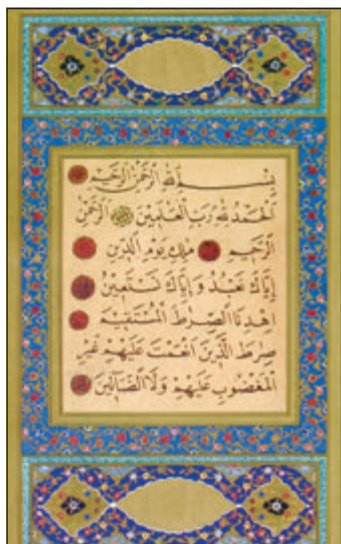 بِسْمِ اللّٰهِ الرَّحْمٰنِ الرَّحِيمِ
اَلْحَمْدُ لِلّٰهِ رَبِّ الْعَالَمِينَ الرَّحْمٰنِ
الرَّحِيمِ مٰلِكِ يَوْمِ الدِّينِ
اِيَّاكَ نَعْبُدُ وَاِيَّاكَ نَسْتَعِينُ
اِهْدِنَا الصِّرَاطَ الْمُسْتَقِيمَ
صِرَاطَ الَّذِينَ اَنْعَمْتَ عَلَيْهِمْ غَيْرِ
الْمَغْضُوبِ عَلَيْهِمْ وَلَا الضَّالِّينَ